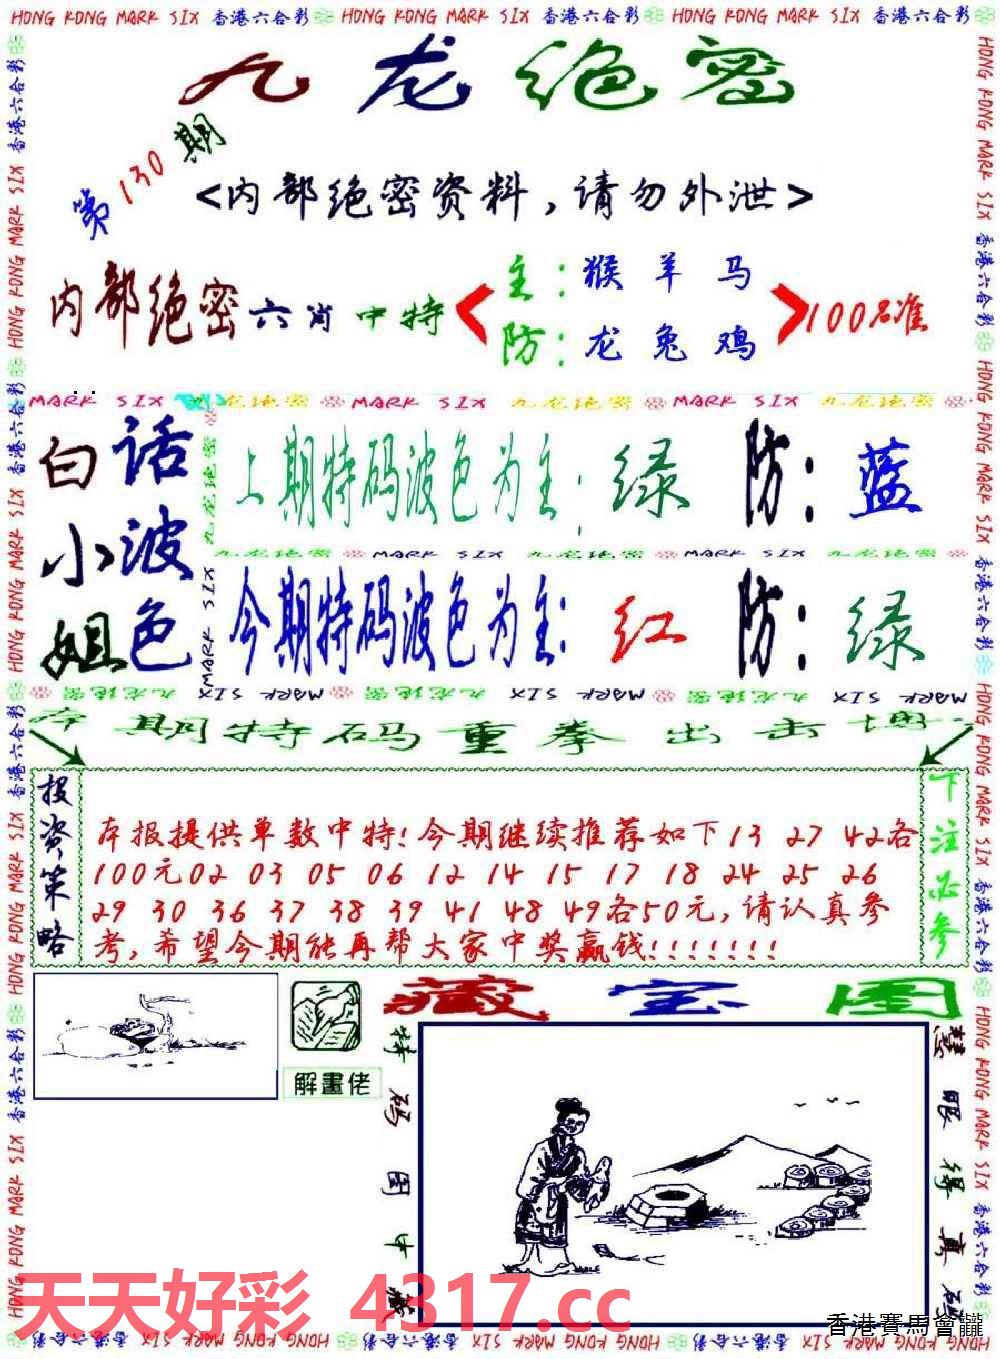 HONG KONG MARK SIX 香港六合彩 HONG KONG MARK SIX 香港六合彩 HONG KONG MARK SIX 香港六合彩
九龙绝密
第130期
<内部绝密资料,请勿外泄>
内部绝密六肖中特
主:猴羊马
防:龙兔鸡
100%准
MARK SIX 九龙绝密 MARK SIX 九龙绝密 MARK SIX 九龙绝密
白小姐
话波色
上期特码波色为主:绿 防:蓝
九龙绝密 MARK SIX 九龙绝密 MARK SIX 九龙绝密
今期特码波色为主:红 防:绿
九龙绝密 MARK SIX 九龙绝密 MARK SIX 九龙绝密 MARK SIX
期特码重拳出击
投资策略
下注必参
本报提供单数中特!今期继续推荐如下13 27 42各
100元02 03 05 06 12 14 15 17 18 24 25 26
29 30 36 37 38 39 41 48 49各50元,请认真参
考,希望今期能再帮大家中奖赢钱!!!!!!!
藏宝图
解畫佬
特码图中藏
慧眼得真码
天天好彩 4317.cc
香港賽馬會
HONG KONG MARK SIX 香港六合彩 HONG KONG MARK SIX 香港六合彩 HONG KONG MARK SIX